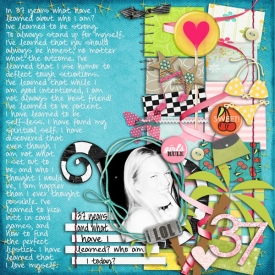 In 37 years what have I
learned about who I am?
I've learned to be strong.
To always stand up for myself.
I've learned that you should
always be honest, no matter
what the outcome. I've
learned that I use humor to
deflect tough situations.
I've learned that while I
am good intentioned, I am
not always the best friend
I've learned to be patient.
I have learned to be
self-less. I have found my
spiritual self. I have
discovered that
even though I
am not what
I set out to
be, and who I
thought I would
be, I am happier
than I ever thought
possible. I've
learned to kick
butt in card
games, and
how to find
the perfect
lipstick. I have
learned that I
love myself.
37 years
and what
have I
learned? who am
I today?
LOL
37